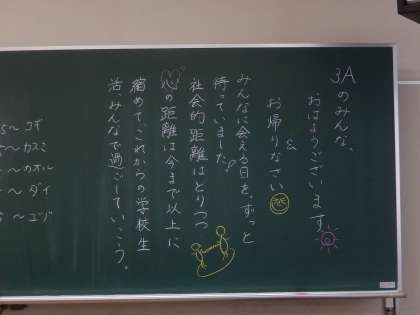 3Aのみんな、
おはようございます
&
お帰りなさい
みんなに会える日を、ずっと
待っていました!
社会的距離はとりつつ
心の距離は今まで以上に
縮めて、これからの学校生
活、みんなで過ごしていこう。
5〜コギ
5〜カスミ
〜カオル
〜ダイ
〜ユヅ